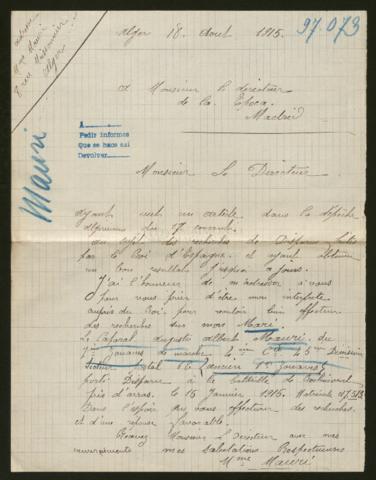 Adresse
Mme Mauri
Alger
97.073
Alger 18 Aout 1915.
A Monsieur le directeur
de la Epoca
Madrid
A
Pedir informes
Que se hace así
Devolver
Mauri
Monsieur Le Directeur
Ayant un article dans la dépêche
du 17 courant
au sujet les recherches de Disparu faites
par le Roi d'Espagne et ayant obtenu
un bon resultat jusqu'a ce jour.
J'ai l'honneur de m'adresser a vous
pour vous prier d'être mon interprete
auprès du Roi, pour vouloir bien effectuer
des recherches sur mon Mari
Le Caporal Auguste Albert Mauri, du
Zouaves de marche 4ème Cie 45me Division
Secteur Postal
porté Disparu à la bataille de
près d'arras. le 15 Janvier 1915. Matricule 17.313
Dans l'espoir que vous effectuer des recherches
et d'une réponse favorable
Recevez Monsieur Le Directeur avec mes
remerciements mes salutations Respectueuses
Mme Mauri